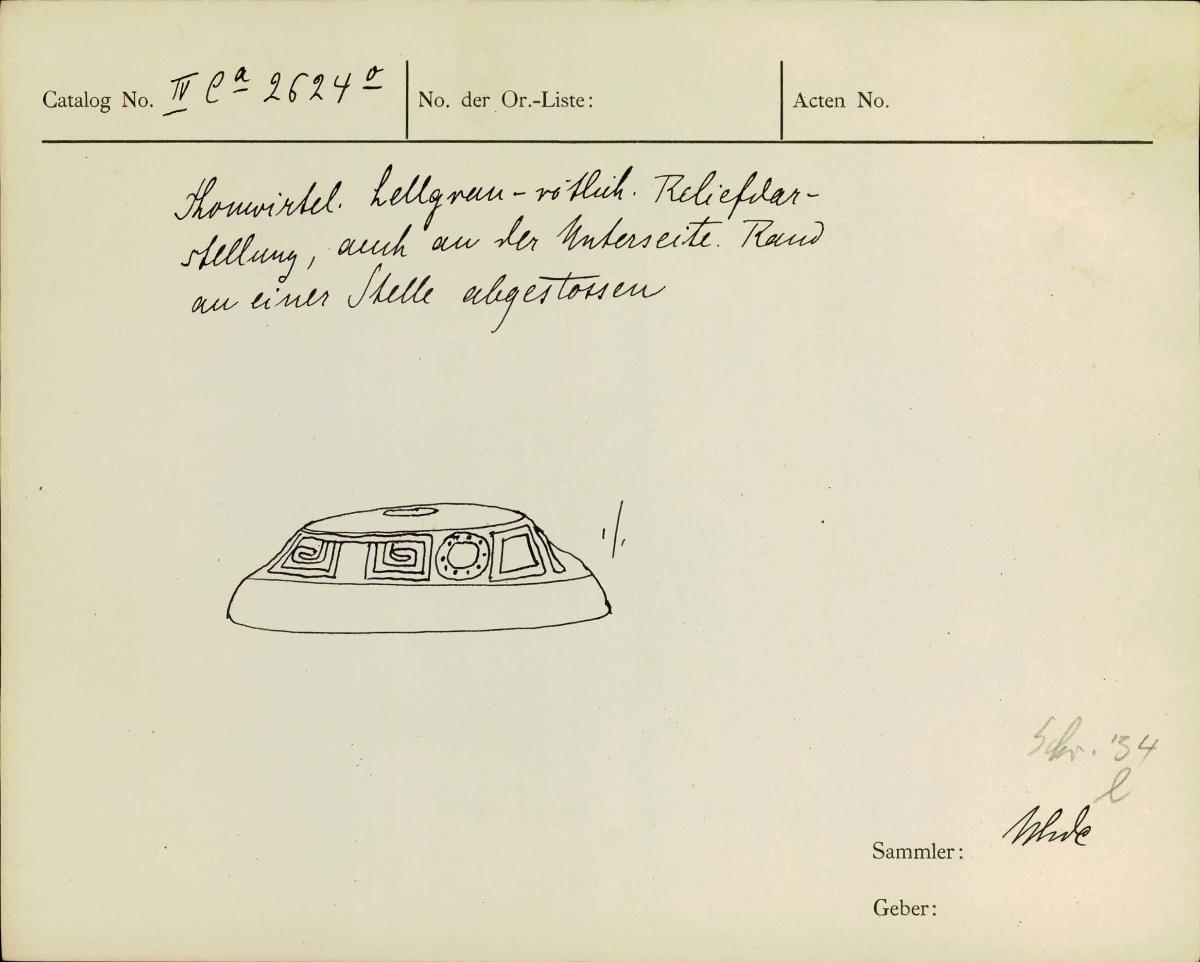 Catalog No. IV Ca 2624 o
No. der Or.-Liste:
Acten No.
Thonwirtel. hellgrau-rötlich. Reliefdar-
stellung, auch an der Unterseite. Rand
an einer Stelle abgestossen
1/1
Schr. '34
l
Sammler: Uhde
Geber: